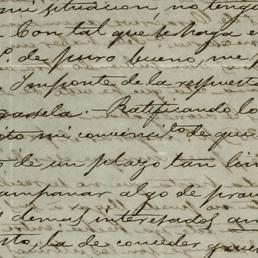 mi situacion, no teng
Con tal que se haga e
de puro bueno, me p
Imponte de la respuest
Ratificando lo
mi convenci. lo de que
de un plazo tan lim
algo de prac
demas interesados an
la de conceder